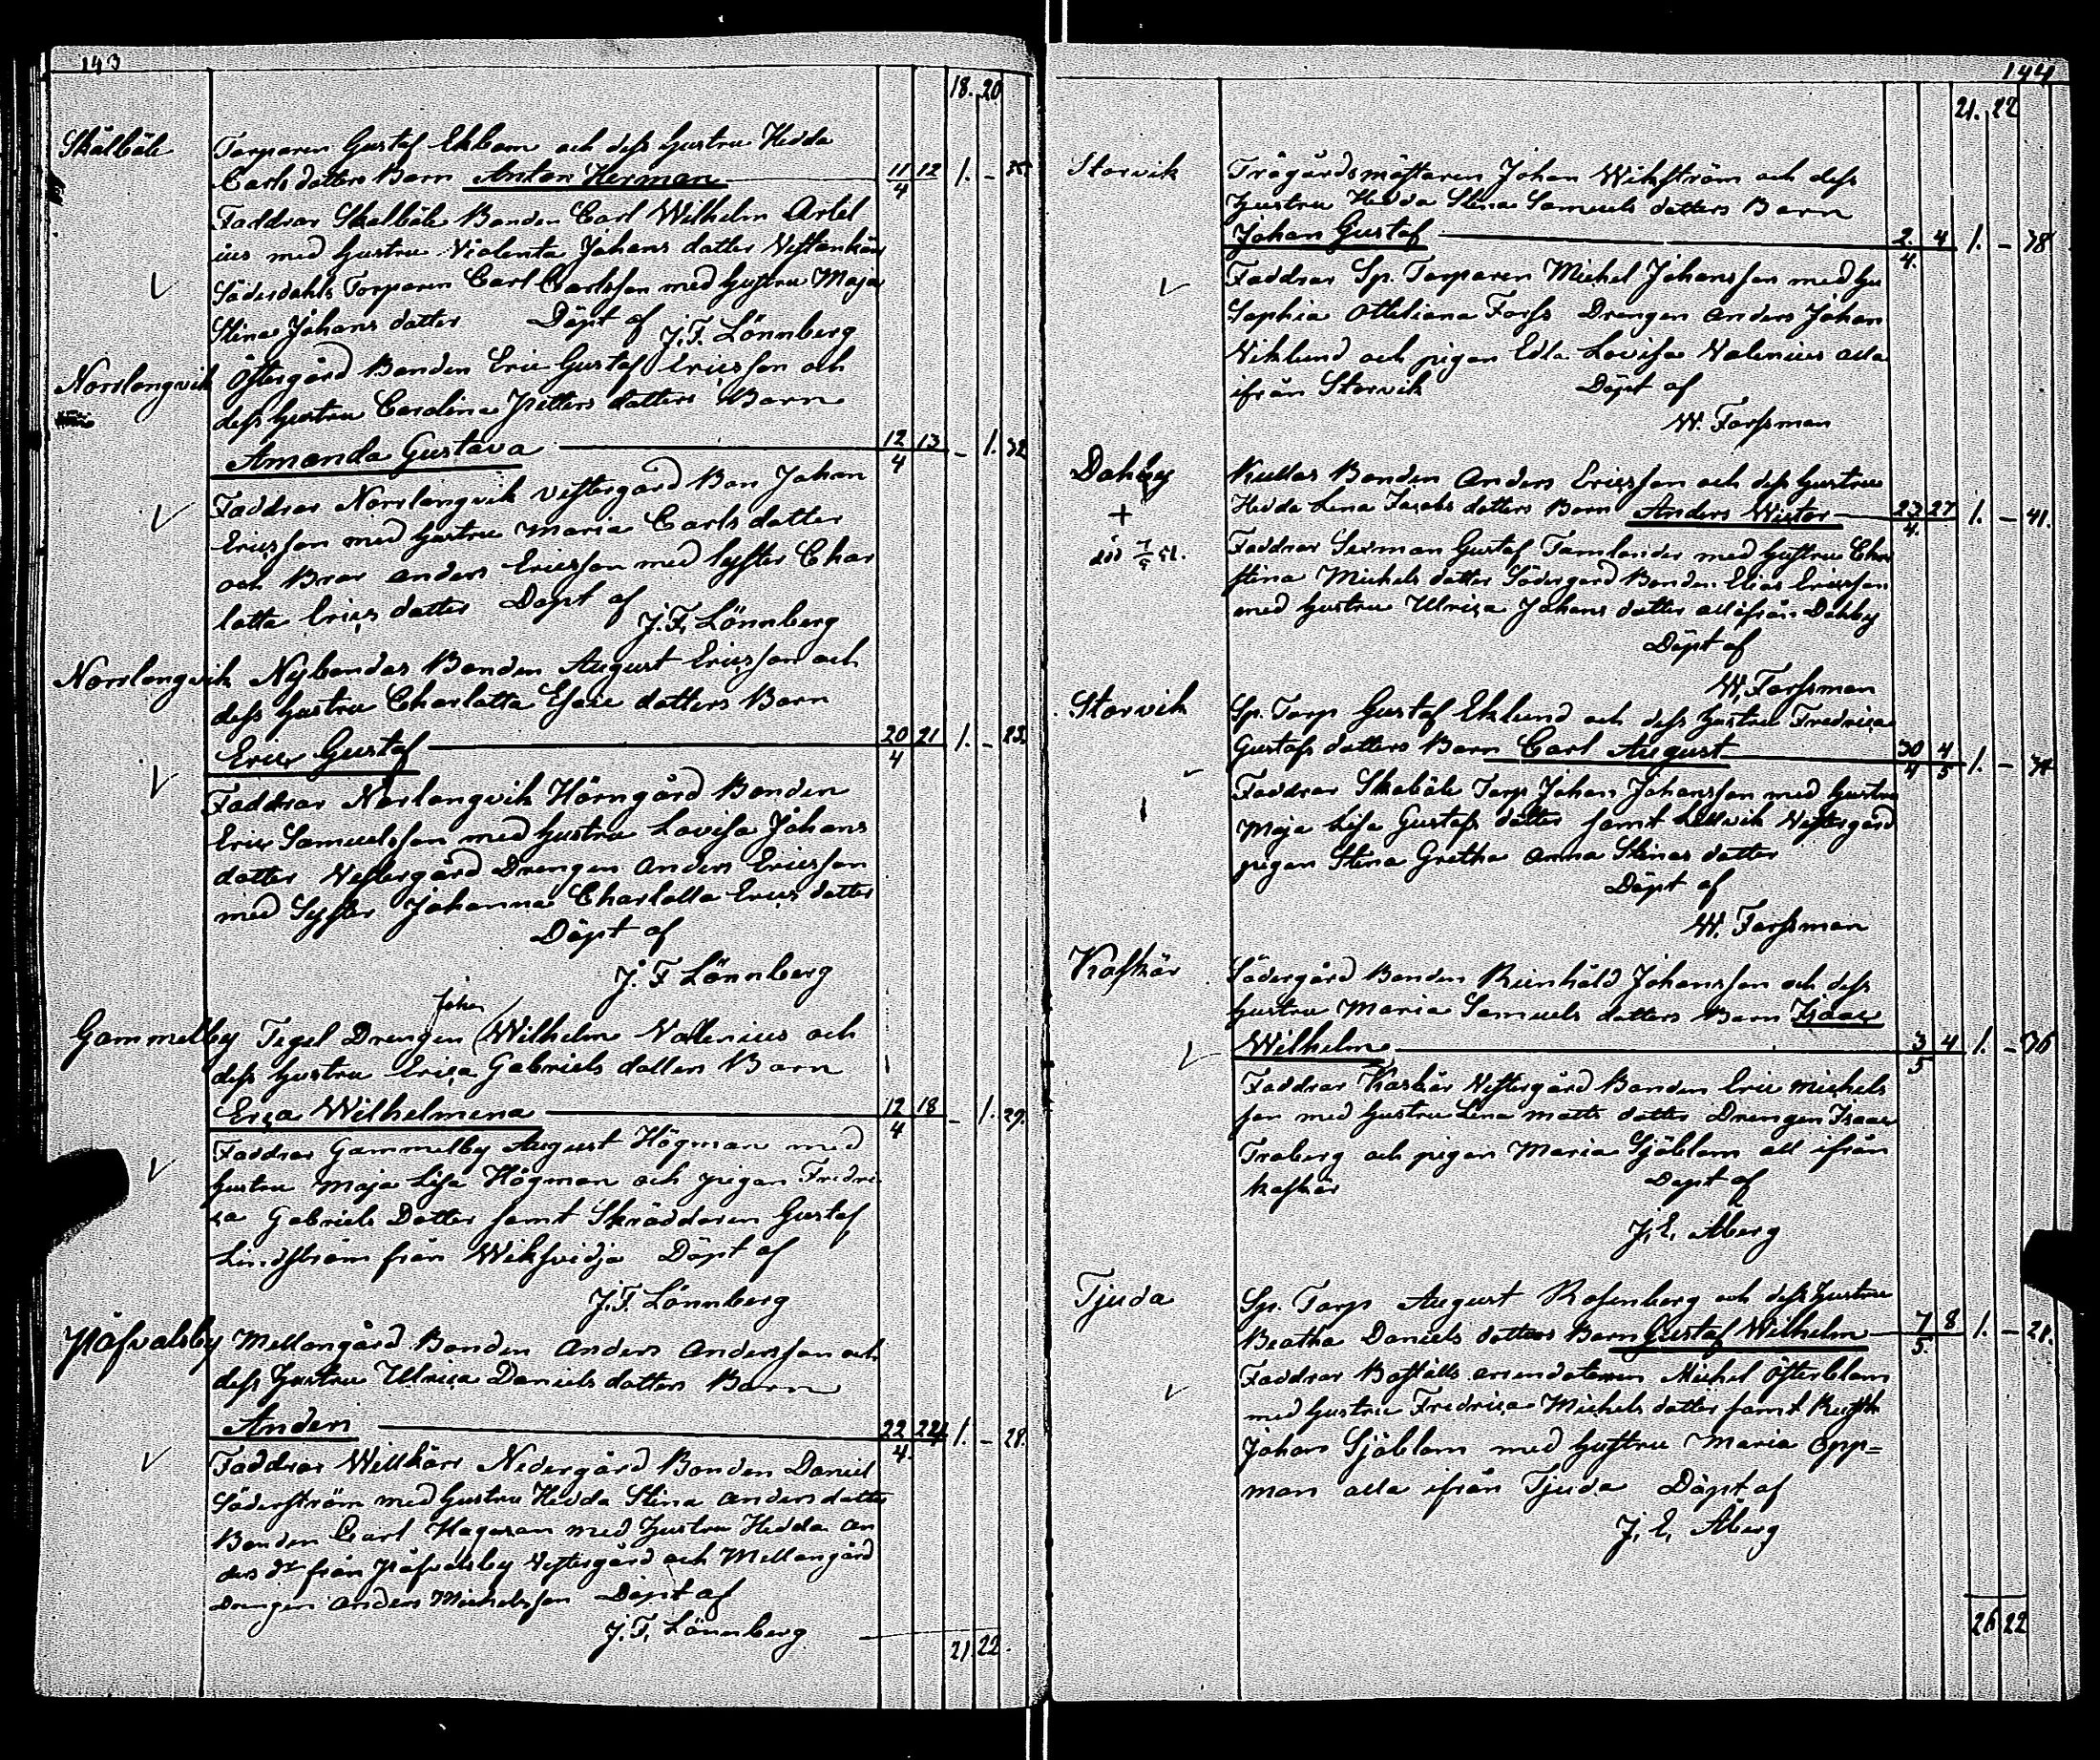 143
18. 20
Skålböle Torparen Gustaf Ekbom och dess Hustru Hedda
Carls dotters Barn Anton Herman 11/4 12 1. – 35
Faddrar Skalböle Bonden Carl Wilhelm Artel
ius med Hustru Violenta Johans dotter Vestankärr
Söderdahls Torparen Carl Carlsson med Hustru Maja
Stina Johans dotter Döpt af J. F. Lönnberg
Norrlongvik Östergård Bonden Eric Gustaf Ericsson och
dess Hustru Carolina Petters dotters Barn
Amanda Gustava 12/4 13 – 1. 32
Faddrar Norrlongvik Vestergård Bon Johan
Ericsson med Hustru Maria Carls dotter
och Bror Anders Ericsson med Syster Char
lotta Erics dotter Döpt af
J. F. Lönnberg
Norrlongvik Nybondas Bonden August Ericsson och
dess Hustru Charlotta Esaie dotters Barn
Eric Gustaf 20/4 21 1. – 23.
Faddrar Norlongvik Hörngård Bonden
Eric Samuelsson med Hustru Lovisa Johans
dotter Vestergård Drengen Anders Ericsson
med Syster Johanna Charlotta Erics dotter
Döpt af
J. F Lönnberg
Johan
Gammelby Tegel Drengen Wilhelm Vallenius och
dess Hustru Erica Gabriels dotters Barn
Erica Wilhelmina 12/4 18 – 1. 29.
Faddrar Gammelby August Högman med
Hustru Maja Lisa Högman och pigan Fredri
ca Gabriels Dotter samt Skräddaren Gustaf
Lindström från Wiksvidja Döpt af
J. F. Lönnberg
Påfvalsby Mellangård Bonden Anders Andersson och
dess Hustru Ulrica Daniels dotters Barn
Anders 22/4. 24 1. – 28.
Faddrar Willkärr Nedergård Bonden Daniel
Söderström med Hustru Hedda Stina Anders dotter
Bonden Carl Hageran med Hustru Hedda An
ders dr från Påfvalsby Vestergård och Mellangård
Drengen Anders Michelsson Döpt af
J. F. Lönnberg
21 22.
144
21. 22
Storvik Trägårdsmästaren Johan Wikström och dess
Hustru Hedda Stina Samuels dotters Barn
Johan Gustaf 2./4. 4 1. – 38
Faddrar Sp. Torparen Michel Johansson med Hu
Sophia Otteliana Forss Drengen Anders Johan
Viklund och pigan Edla Lovisa Valenius alla
ifrån Storvik Döpt af
W. Forssman
Dahlby Kullas Bonden Anders Ericsson och dess Hustru
Hedda Lena Jacobs dotters Barn Anders Victor 23/4. 27 1. – 41.
+
död 7/5 51.
Faddrar Sexman Gustaf Tamlander med Hustru Chri
stina Michels dotter Södergård Bonden Elias Ericsson
med Hustru Ulrica Johans dotter all ifrån Dahlby
Döpt af
W. Forssman
Storvik Sp. Torp Gustaf Eklund och dess Hustru Fredrica
Gustafs dotters Barn Carl August 30/4 4/5 1. – 34
Faddrar Skoböle Torp Johan Johansson med Hustru
Maja Lisa Gustafs dotter samt Lillvik Vestergård
pigan Stina Gretha Anna Stinas dotter
Döpt af
W. Forssman
Kaskär Södergård Bonden Reinhold Johansson och dess
Hustru Maria Samuels dotters Barn Isaac
Wilhelm 3/5 4 1. – 36
Faddrar Kaskär Vestergård Bonden Eric Michels
son med Hustru Lena Matts dotter Drengen Isaac
Troberg och pigan Maria Sjöblom all ifrån
Kaskär Döpt af
J. E. Åberg
Tjuda Sp. Torp August Rosenberg och dess Hustru
Beatha Daniels dotters Barn Gustaf Wilhelm 7/5 8 1. – 28.
Faddrar Boställs arrendatoren Michel Österblom
med Hustru Fredrica Michels dotter samt
Johan Sjöblom med Hustru Maria Opp=
man alla ifrån Tjuda Döpt af
J. E. Åberg
26 22